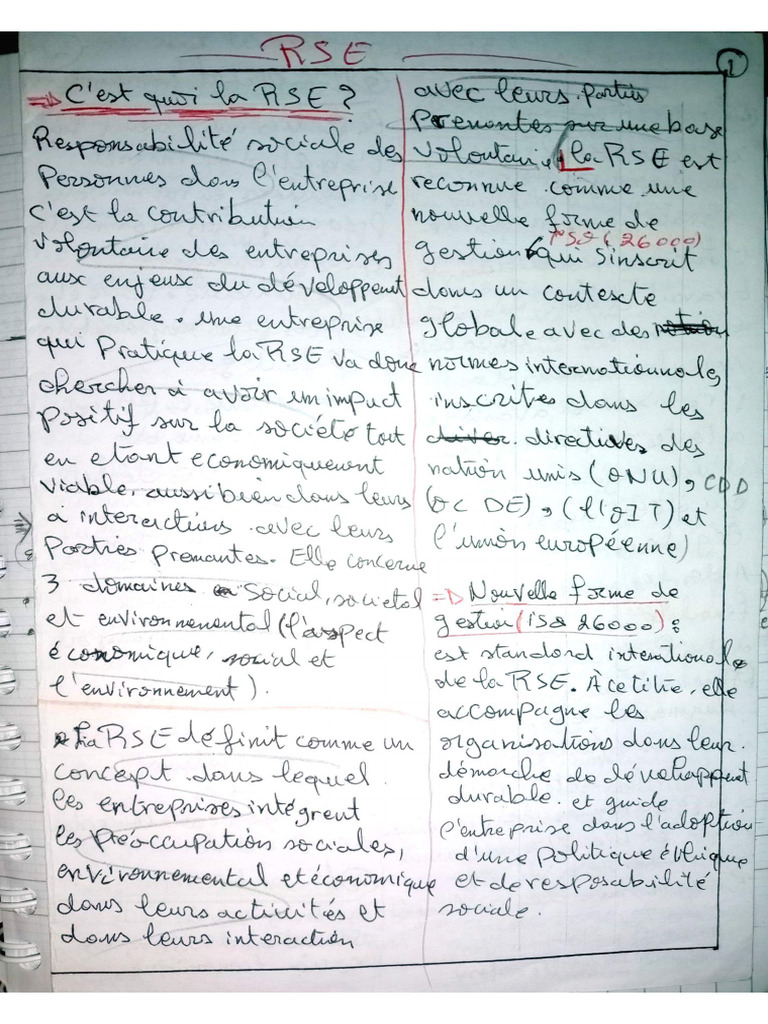 RSE
1
=> C'est quoi la RSE ?
Responsabilité sociale des
Personnes dans l'entreprise
c'est la contribution
volontaire des entreprises
aux enjeux du développent
durable. une entreprise
qui Pratique la RSE va donc
chercher à avoir un impact
positif sur la société tout
en etant economiquement
viable, aussi bien dans leurs
à interactions avec leurs
Parties Prenantes. Elle concerne
3 domaines Social, societal
et environnemental (l'aspect
économique, social et
l'environnement).
La RSE définit comme un
concept dans lequel
les entreprises intégrent
les préoccupation sociales,
environnemental et économique
dans leurs activités et
dans leurs interaction
avec leurs parties
Prenantes sur une base
volontaire, la RSE est
reconnue comme une
nouvelle forme de
ISO (26000)
gestion qui s'inscrit
dans un contexte
globale avec des
normes internationnales
inscrites dans les
directives des
nation unis (ONU), CDD
(OC DE), (l'OIT) et
l'union européenne)
=> Nouvelle forme de
gestion (ISO 26000) :
est standard international
de la RSE. À ce titre, elle
accompagne les
organisations dans leur
démarche de développent
durable. et guide
l'entreprise dans l'adoption
d'une politique éthique
et de resposabilité
sociale.